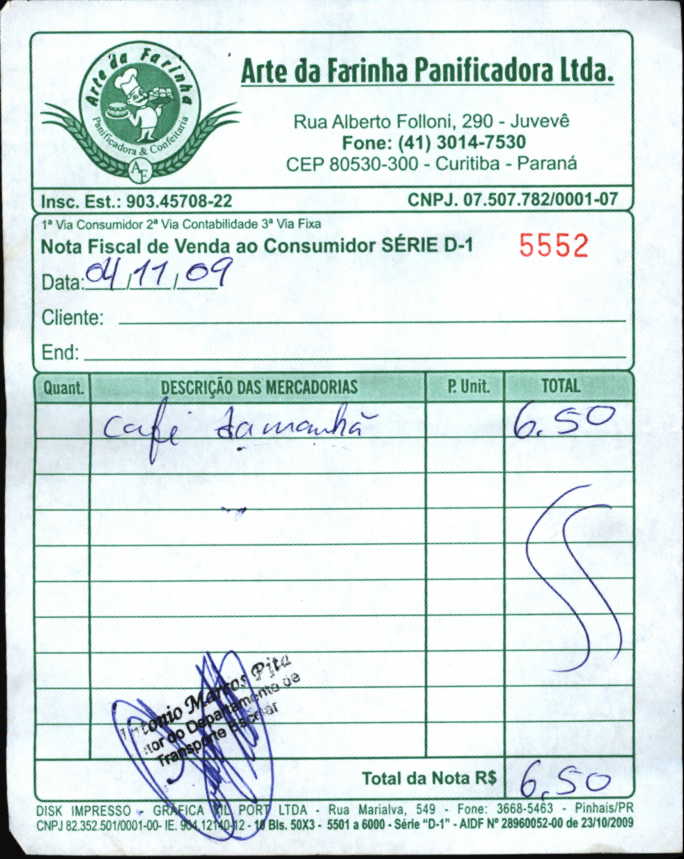 Arte da Farinha
Panificadora & Confeitaria
AF
Arte da Farinha Panificadora Ltda.
Rua Alberto Folloni, 290 - Juvevê
Fone: (41) 3014-7530
CEP 80530-300 - Curitiba - Paraná
Insc. Est.: 903.45708-22 CNPJ. 07.507.782/0001-07
1ª Via Consumidor 2ª Via Contabilidade 3ª Via Fixa
Nota Fiscal de Venda ao Consumidor SÉRIE D-1 5552
Data: 04/11/09
Cliente:
End:
Quant. DESCRIÇÃO DAS MERCADORIAS P. Unit. TOTAL
café da manhã 6,50
Antonio Marcos Pita
do Departamento de
Transporte Escolar
Total da Nota R$ 6,50
DISK IMPRESSO - GRÁFICA PORT LTDA - Rua Marialva, 549 - Fone: 3668-5463 - Pinhais/PR
CNPJ 82.352.501/0001-00- IE. 904.12140-12 - 10 Bls. 50X3 - 5501 a 6000 - Série "D-1" - AIDF Nº 28960052-00 de 23/10/2009